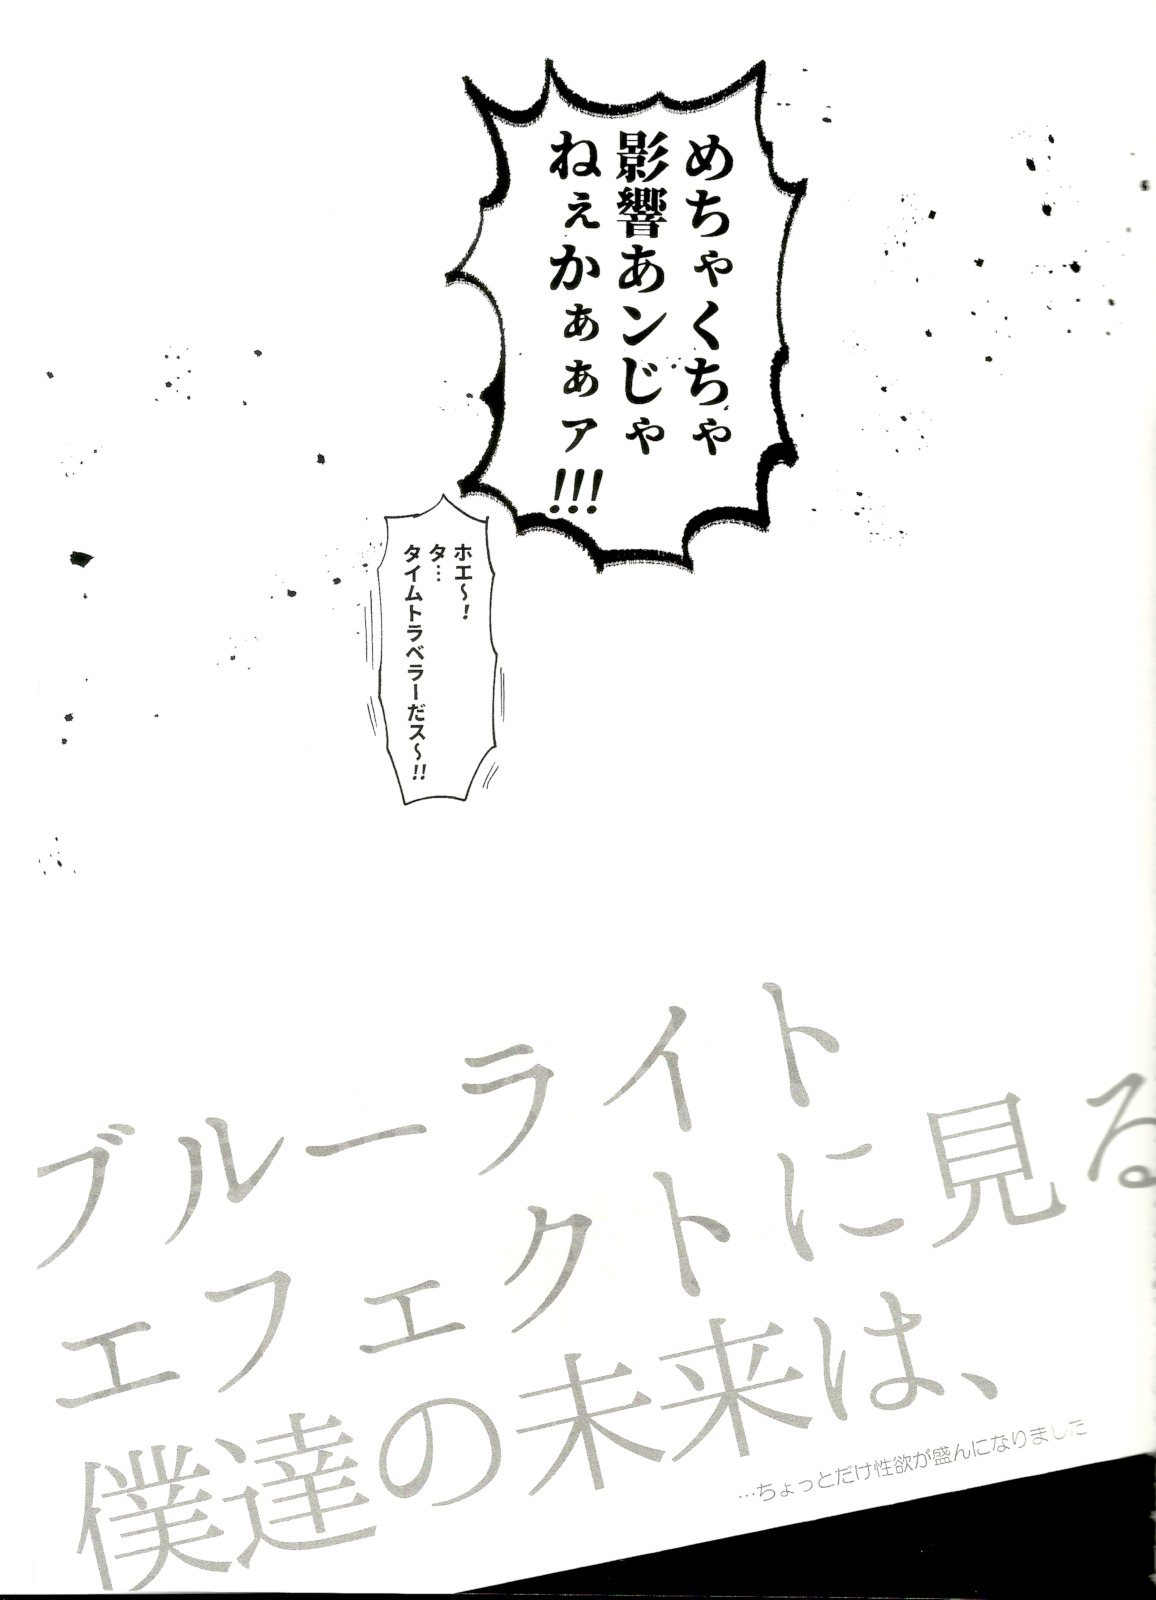 めちゃくちゃ
影響あンじゃ
ねぇかぁぁァ
!!!
ホエ～!
タ…
タイムトラベラーだス～!!
ブルーライト
エフェクトに見る
僕達の未来は、
…ちょっとだけ性欲が盛んになりました